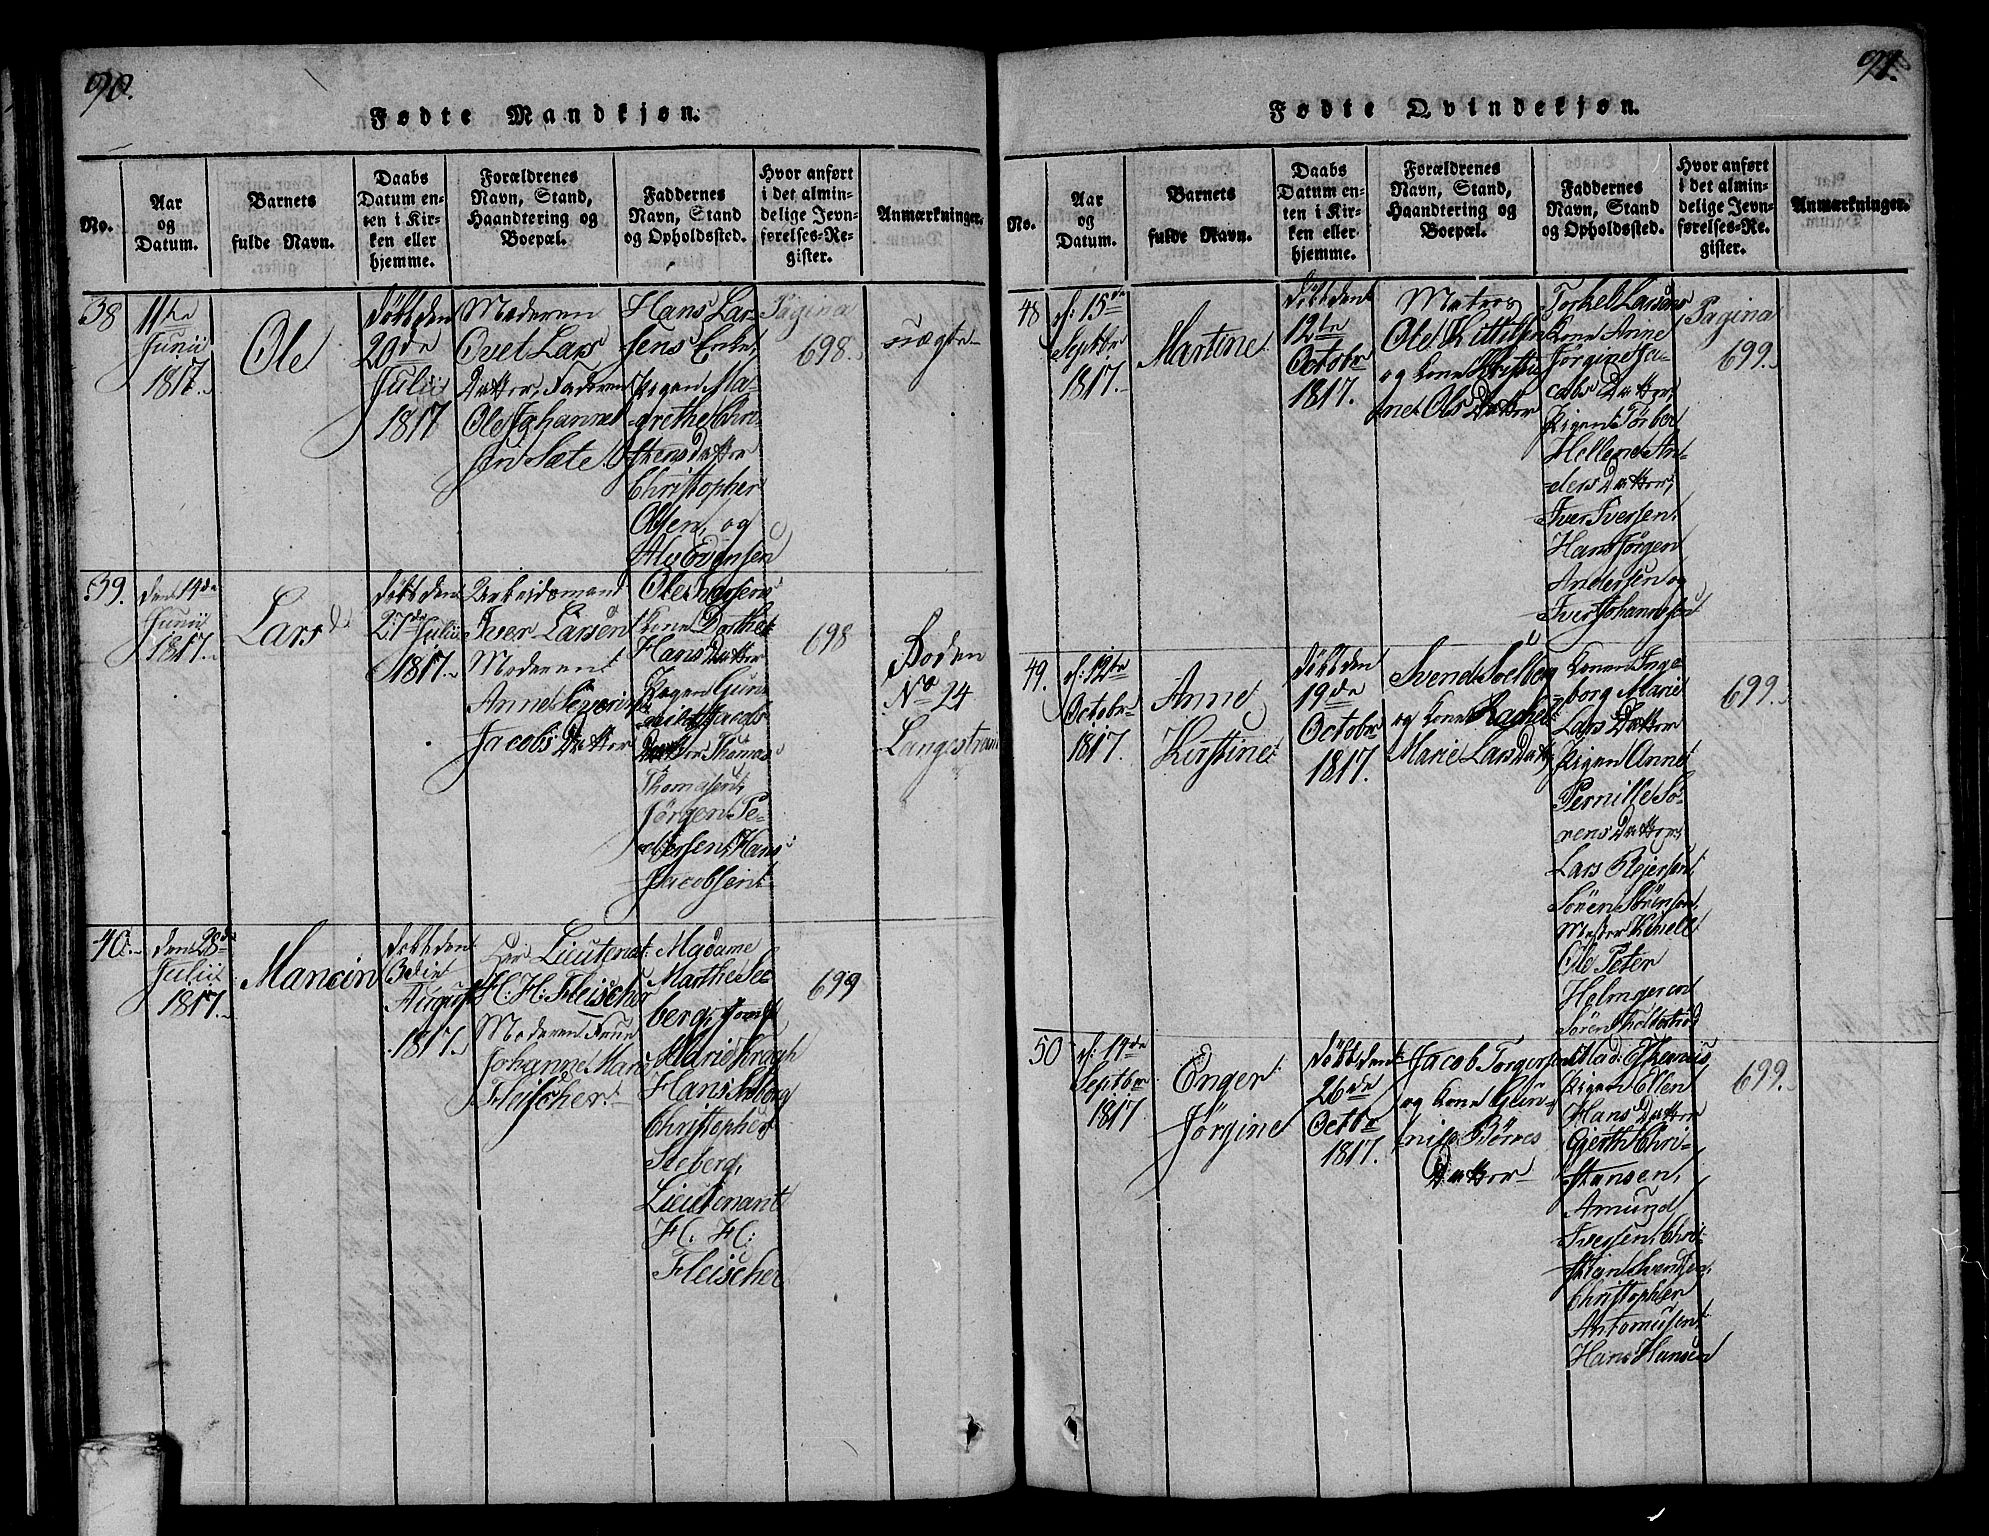 90.
Fødte Mandkjøn.
No.
Aar
og
Datum.
Barnets
fulde Navn.
Daabs
Datum en-
ten i Kir-
ken eller
hjemme.
Forældrenes
Navn, Stand,
Haandtering og
Boepæl.
Faddernes
Navn, Stand
og Opholdssted.
Hvor anført
i det almin-
delige Jevn-
førelses-Re-
gister.
Anmærkninger.
38
11te
Junii
1817.
Ole
døbt den
20de
Julii
1817
Moderen
Lars
Datter, Faderen
Ole Johanne
sen Sæte
Hans Lar-
sens Enke,
Pigen Ma-
grethe Chri-
stensDatter
Christopher
Olsen, og
Alv Evensen
Pagina
698.
uægte
39.
den 14de
Junii
1817.
Lars
døbt den
27de Julii
1817.
Arbeidsmand
Iver Larsen
Moderen
Anne Severin
Jacobs Datter
Ole Larsens
kone Dorthe
Hans Datter
Pigen Gun-
Jacobs
Datter Thomas
Thomasen,
Jørgen Pe-
dersen, Hans
Jacobsen
698
Boden
No 24
Langestrand
40.
den 28de
Julii
1817.
Mancin
døbt den
3die
August
1817.
Hr Lieutenat
H: H: Fleischer
Moderen Frue
Johanne Marie
Fleischer
Madame
Marthe See-
berg, Jomfr
Marie Kragh
Hans Seeberg
Christopher
Seeberg,
Lieutenant
H. H:
Fleischer
699
91.
Fødte Qvindekjøn.
No.
Aar
og
Datum.
Barnets
fulde Navn.
Daabs
Datum en-
ten i Kir-
ken eller
hjemme.
Forældrenes
Navn, Stand,
Haandtering og
Boepæl.
Faddernes
Navn, Stand
og Opholdssted.
Hvor anført
i det almin-
delige Jevn-
førelses-Re-
gister.
Anmærkninger.
48
d: 15de
Septbr
1817.
Martine
døbt den
12te
Octobr
1817.
Matros
Ole Kittilsen
og kone Kirsti
Ols Datter
Torkel Larsens
kone Anne
Jørgine Ja-
cobs Datter,
Pigen Torbor
Hellene An-
ders Datter,
Iver Iversen,
Hans Jørgen
Andersen og
Iver Johannesen
Pagina
699.
49.
d: 12te
Octobr
1817.
Anne
Kirstine
døbt den
19de
Octobr
1817.
Svend Solberg
og kone Rachel
Marie Lars Datter
konen Inge-
borg Marie
Lars Datter
Pigen Anne
Pernille Sø-
rens Datter,
Lars Rejersen
Søren Sørensen,
Mester Kinell
Ole Peter
Holmgren
Søren
699.
50
d: 14de
Septbr
1817.
Enger
Jørgine
døbt den
26de
Octbr
1817.
Jacob Torgersen
og kone Gun-
nild Børres
Datter
Mad:
Pigen Ellen
Hans Datter
Gerth Chri-
stensen,
Amund
Iversen, Chri-
stian Svendsen,
Christopher
Antonisen
Hans Hansen
699.